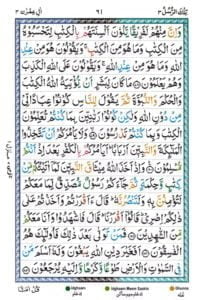 تِلْكَ الرُّسُلُ ٣ ٩١ اٰلِ عِمْرٰن ٣
وَاِنَّ مِنْهُمْ لَفَرِيْقًا يَّلْوٗنَ اَلْسِنَتَهُمْ بِالْكِتٰبِ لِتَحْسَبُوْهُ
مِنَ الْكِتٰبِ وَمَا هُوَ مِنَ الْكِتٰبِ ۚ وَيَقُوْلُوْنَ هُوَ مِنْ
عِنْدِ اللّٰهِ وَمَا هُوَ مِنْ عِنْدِ اللّٰهِ ۚ وَيَقُوْلُوْنَ عَلَى اللّٰهِ الْكَذِبَ
وَهُمْ يَعْلَمُوْنَ مَا كَانَ لِبَشَرٍ اَنْ يُّؤْتِيَهُ اللّٰهُ الْكِتٰبَ
وَالْحُكْمَ وَالنُّبُوَّةَ ثُمَّ يَقُوْلَ لِلنَّاسِ كُوْنُوْا عِبَادًا لِّيْ
مِنْ دُوْنِ اللّٰهِ وَلٰكِنْ كُوْنُوْا رَبَّانِيّٖنَ بِمَا كُنْتُمْ تُعَلِّمُوْنَ
الْكِتٰبَ وَبِمَا كُنْتُمْ تَدْرُسُوْنَ وَلَا يَاْمُرَكُمْ اَنْ تَتَّخِذُوا
الْمَلٰٓئِكَةَ وَالنَّبِيّٖنَ اَرْبَابًا اَيَاْمُرُكُمْ بِالْكُفْرِ بَعْدَ اِذْ اَنْتُمْ
مُّسْلِمُوْنَ وَاِذْ اَخَذَ اللّٰهُ مِيْثَاقَ النَّبِيّٖنَ لَمَآ اٰتَيْتُكُمْ مِّنْ
كِتٰبٍ وَّحِكْمَةٍ ثُمَّ جَآءَكُمْ رَسُوْلٌ مُّصَدِّقٌ لِّمَا مَعَكُمْ
لَتُؤْمِنُنَّ بِهٖ وَلَتَنْصُرُنَّهٗ قَالَ ءَاَقْرَرْتُمْ وَاَخَذْتُمْ عَلٰى
ذٰلِكُمْ اِصْرِيْ قَالُوْٓا اَقْرَرْنَا قَالَ فَاشْهَدُوْا وَاَنَا مَعَكُمْ
مِّنَ الشّٰهِدِيْنَ فَمَنْ تَوَلّٰى بَعْدَ ذٰلِكَ فَاُولٰٓئِكَ هُمُ
الْفٰسِقُوْنَ اَفَغَيْرَ دِيْنِ اللّٰهِ يَبْغُوْنَ وَلَهٗٓ اَسْلَمَ مَنْ
فِي السَّمٰوٰتِ وَالْاَرْضِ طَوْعًا وَّكَرْهًا وَّاِلَيْهِ يُرْجَعُوْنَ
Idghaam
Idghaam Meem Saakin
Ghunna